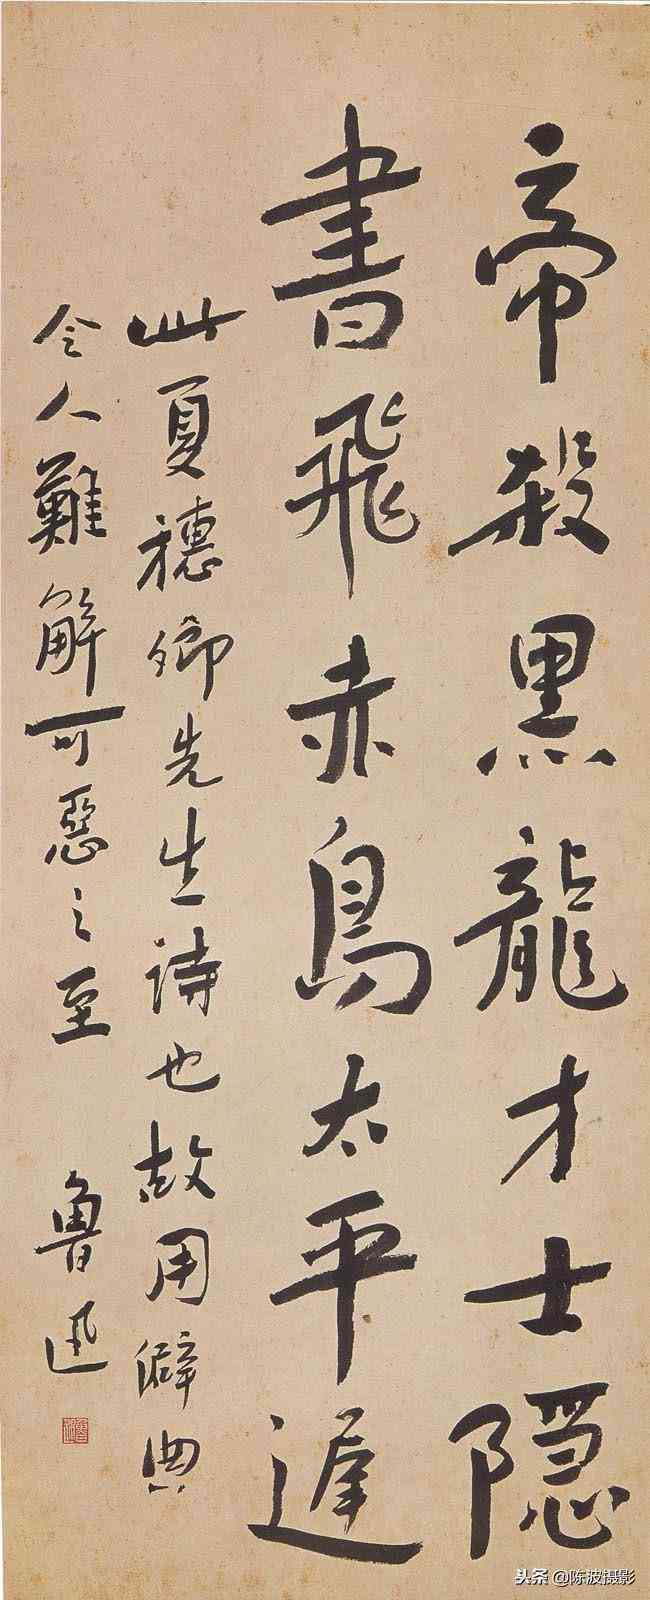 帝殺黑龍才士隱
書飛赤鳥太平遲
此夏穗卿先生詩也故用僻典
令人難解可惡之至
魯迅
头条 @陈波摄影